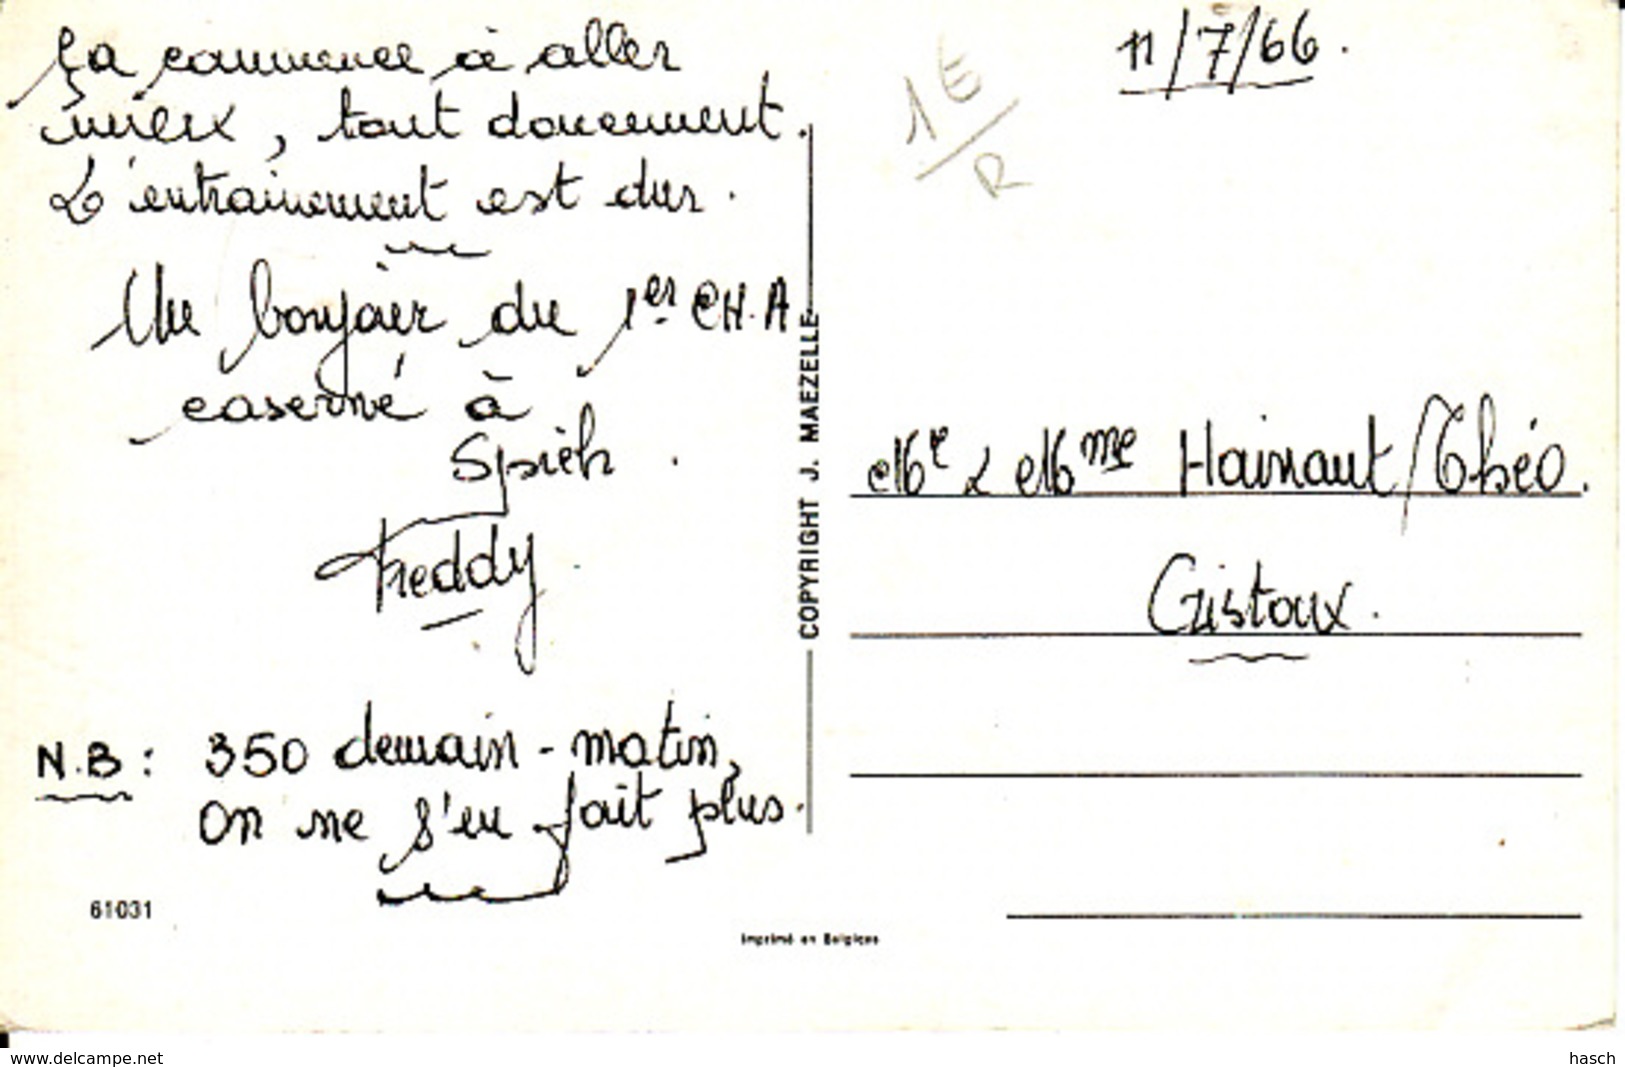 Ça commence à aller
mieux, tout doucement.
L'entrainement est dur.
Un bonjour du 1er CH.A
caserné à
Spich.
Freddy
N.B: 350 demain-matin,
On ne s'en fait plus.
61031
COPYRIGHT J. MAEZELLE
Imprimé en Belgique
1E/R
11/7/66.
Mr & Mme Hainaut/Théo.
Cristoux.
www.delcampe.net
hasch